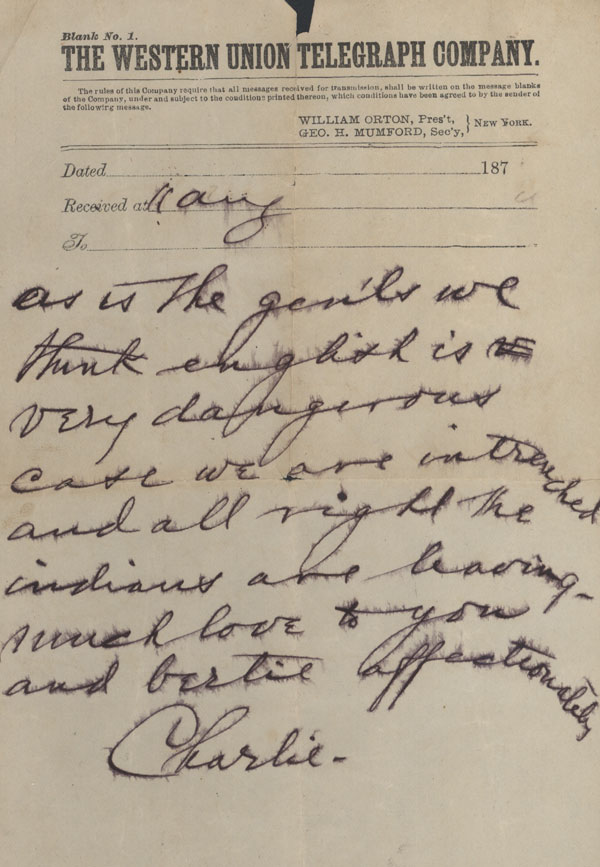 Blank No. 1.
THE WESTERN UNION TELEGRAPH COMPANY.
The rules of this Company require that all messages received for transmission, shall be written on the message blanks
of the Company, under and subject to the conditions printed thereon, which conditions have been agreed to by the sender of
the following message.
WILLIAM ORTON, Pres't,
GEO. H. MUMFORD, Sec'y,
NEW YORK.
Dated 187
Received at 11 aug
To
as is the genl's we
think english is
very dangerous
case we are intrenched
and all right the
indians are leaving-
much love to you
and bertie affectionately
Charlie-